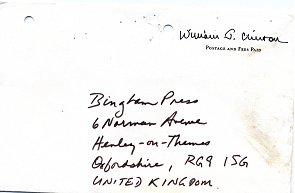 William J. Clinton
POSTAGE AND FEES PAID
Bingham Press
6 Norman Avenue
Henley-on-Thames
Oxfordshire, RG9 1SG
UNITED KINGDOM